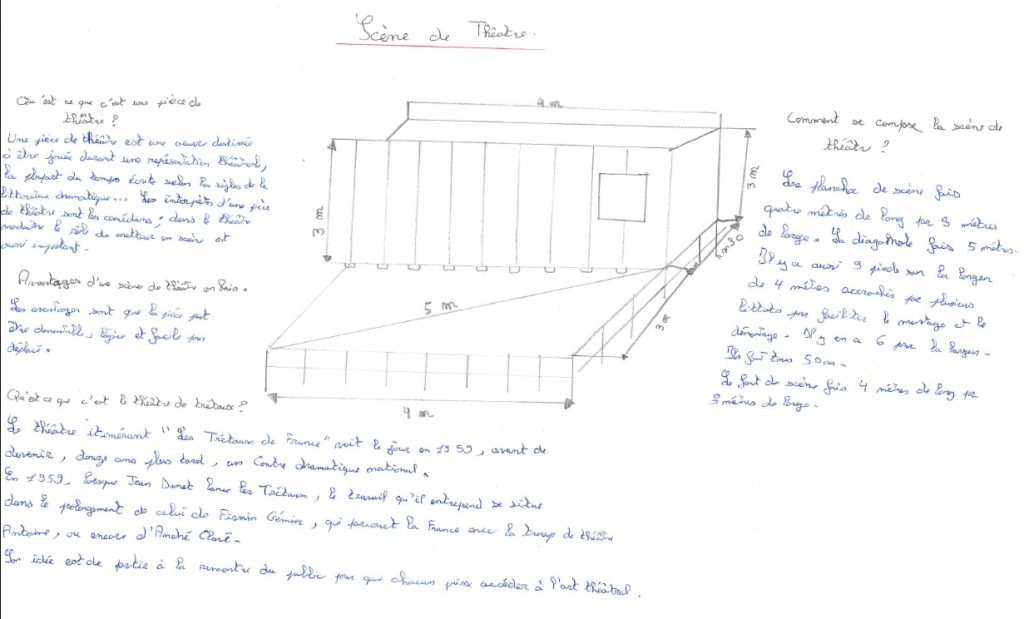 Scène de Théâtre.
Qu'est ce que c'est une pièce de
théâtre ?
Une pièce de théâtre est une oeuvre destinée
à être jouée durant une représentation théâtrale,
la plupart du temps écrite selon les règles de la
littéraire dramatique... Les interprètes d'une pièce
de théâtre sont les comédiens ; dans le théâtre
moderne le rôle du metteur en scène est
aussi important.
Avantages d'une scène de théâtre en bois.
Les avantages sont que la pièce peut
être démontable, légère et facile pour
déplacé.
4 m
3 m
3 m
1m30
5 m
3 m
4 m
Comment se compose la scène de
théâtre ?
Le plancher de scène fais
quatre mètres de long par 3 mètres
de large. La diagonale fais 5 mètres.
Il y a aussi 9 pieds sur la longueur
de 4 mètres accrochés par plusieurs
pour faciliter le montage et le
démontage. Il y en a 6 par la largeur.
Ils font tous 50cm.
Le font de scène fais 4 mètres de long par
3 mètres de large.
Qu'est ce que c'est le théâtre de tréteaux ?
Le théâtre itinérant "Les Tréteaux de France" voit le jour en 1959, avant de
devenir, douze ans plus tard, un Centre dramatique national.
En 1959, lorsque Jean Danet lance les Tréteaux, le travail qu'il entreprend se situe
dans le prolongement de celui de Firmin Gémier, qui parcourt la France avec la troupe de théâtre
Antoine, ou encore d'André Clavé.
Son idée est de partir à la rencontre du public pour que chacun puisse accéder à l'art théâtral.